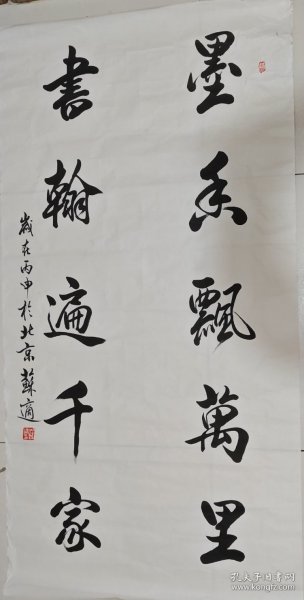 墨香飘萬里
書翰遍千家
歲在丙申於北京蘇適
孔夫子旧书网
www.kongfz.com